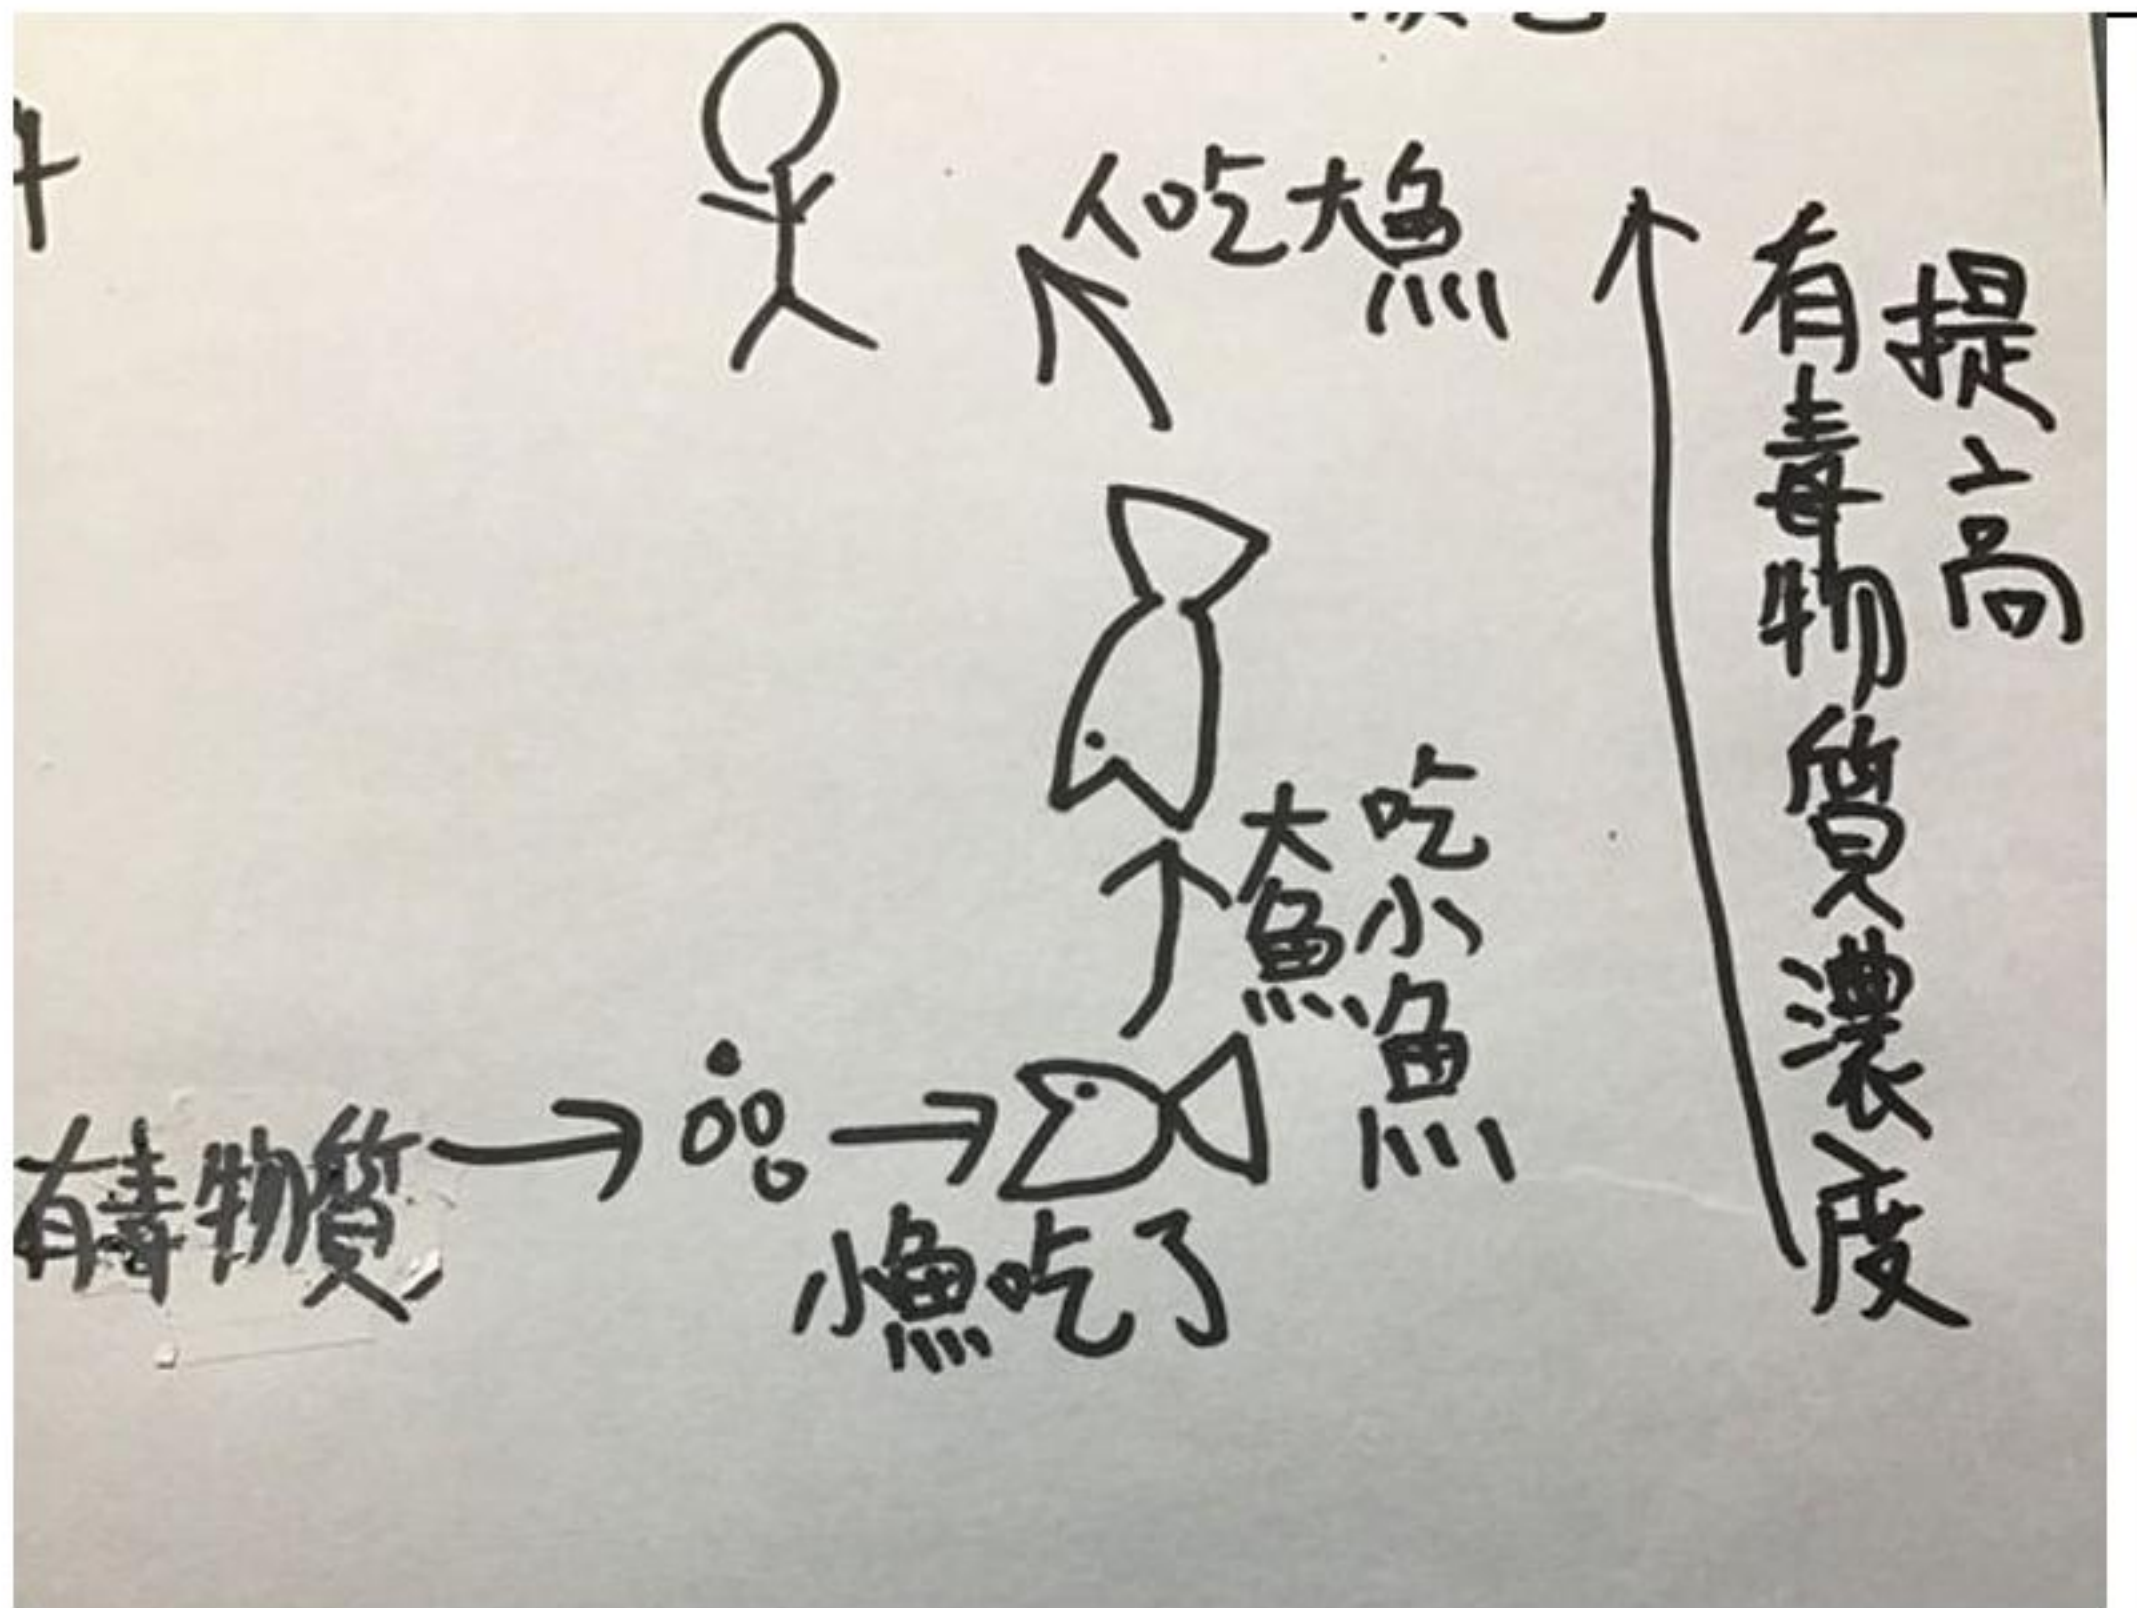 人吃大魚
有毒物質濃度
提高
大魚
吃小魚
有毒物質
小魚吃了